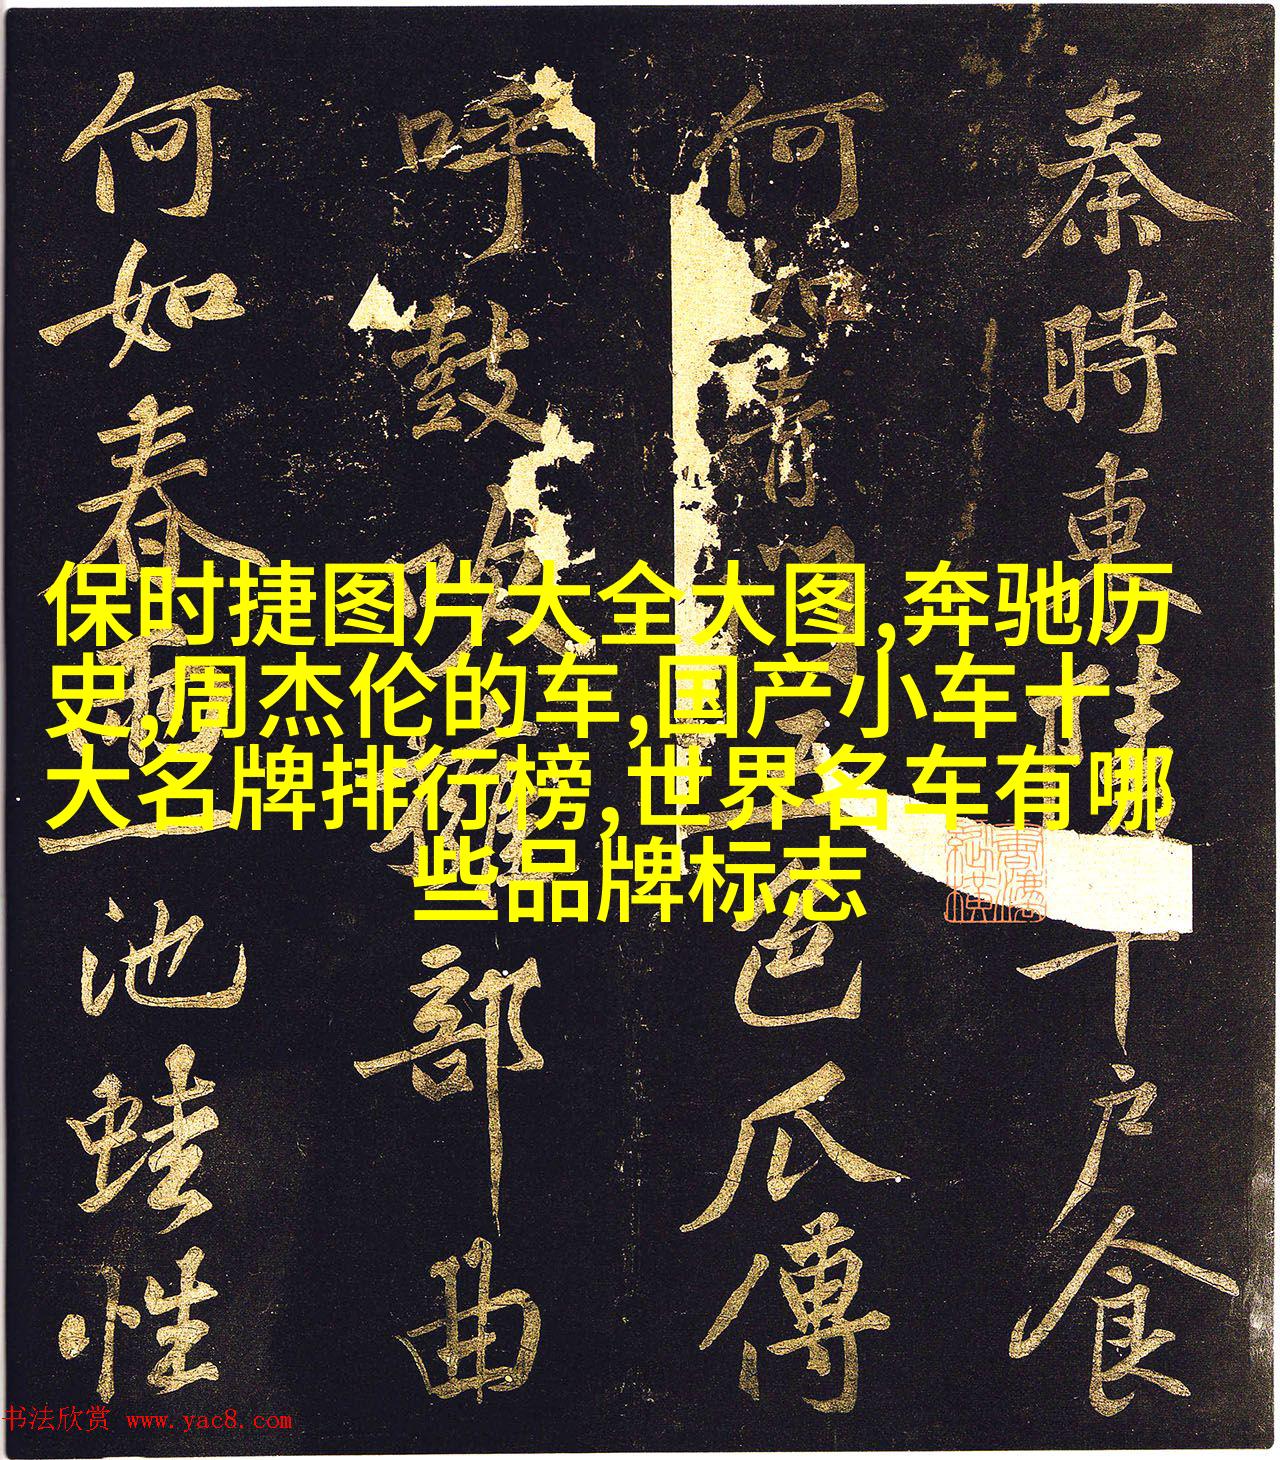 秦時東陵千户食
何如青門五色瓜傳
呼鼓吹 部曲
何如春雨一池蛙性
保时捷图片大全大图,奔驰历
史,周杰伦的车,国产小车十
大名牌排行榜,世界名车有哪
些品牌标志
书法欣赏 www.yac8.com